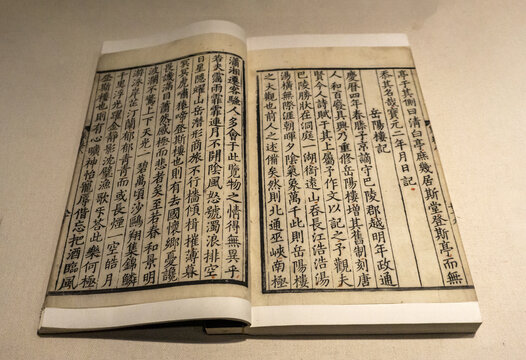 亭于其側曰清白亭庶幾居斯堂登斯亭而無
忝其名哉寶元二年月日記
岳陽樓記
慶曆四年春滕子京謫守巴陵郡越明年政通
人和百廢具興乃重修岳陽樓增其舊制刻唐
賢今人詩賦于其上屬予作文以記之予觀夫
巴陵勝狀在洞庭一湖銜遠山吞長江浩浩湯
湯橫無際涯朝暉夕陰氣象萬千此則岳陽樓
之大觀也前人之述備矣然則北通巫峽南極
瀟湘遷客騷人多會于此覽物之情得無異乎
若夫霪雨霏霏連月不開陰風怒號濁浪排空
日星隱耀山岳潛形商旅不行檣傾楫摧薄暮
冥冥虎嘯猿啼登斯樓也則有去國懷鄉憂讒
畏譏滿目蕭然感極而悲者矣至若春和景明
波瀾不驚上下天光一碧萬頃沙鷗翔集錦鱗
游泳岸芷汀蘭郁郁青青而或長煙一空皓月
千里浮光耀金靜影沉璧漁歌互答此樂何極
登斯樓也則有心曠神怡寵辱偕忘把酒臨風